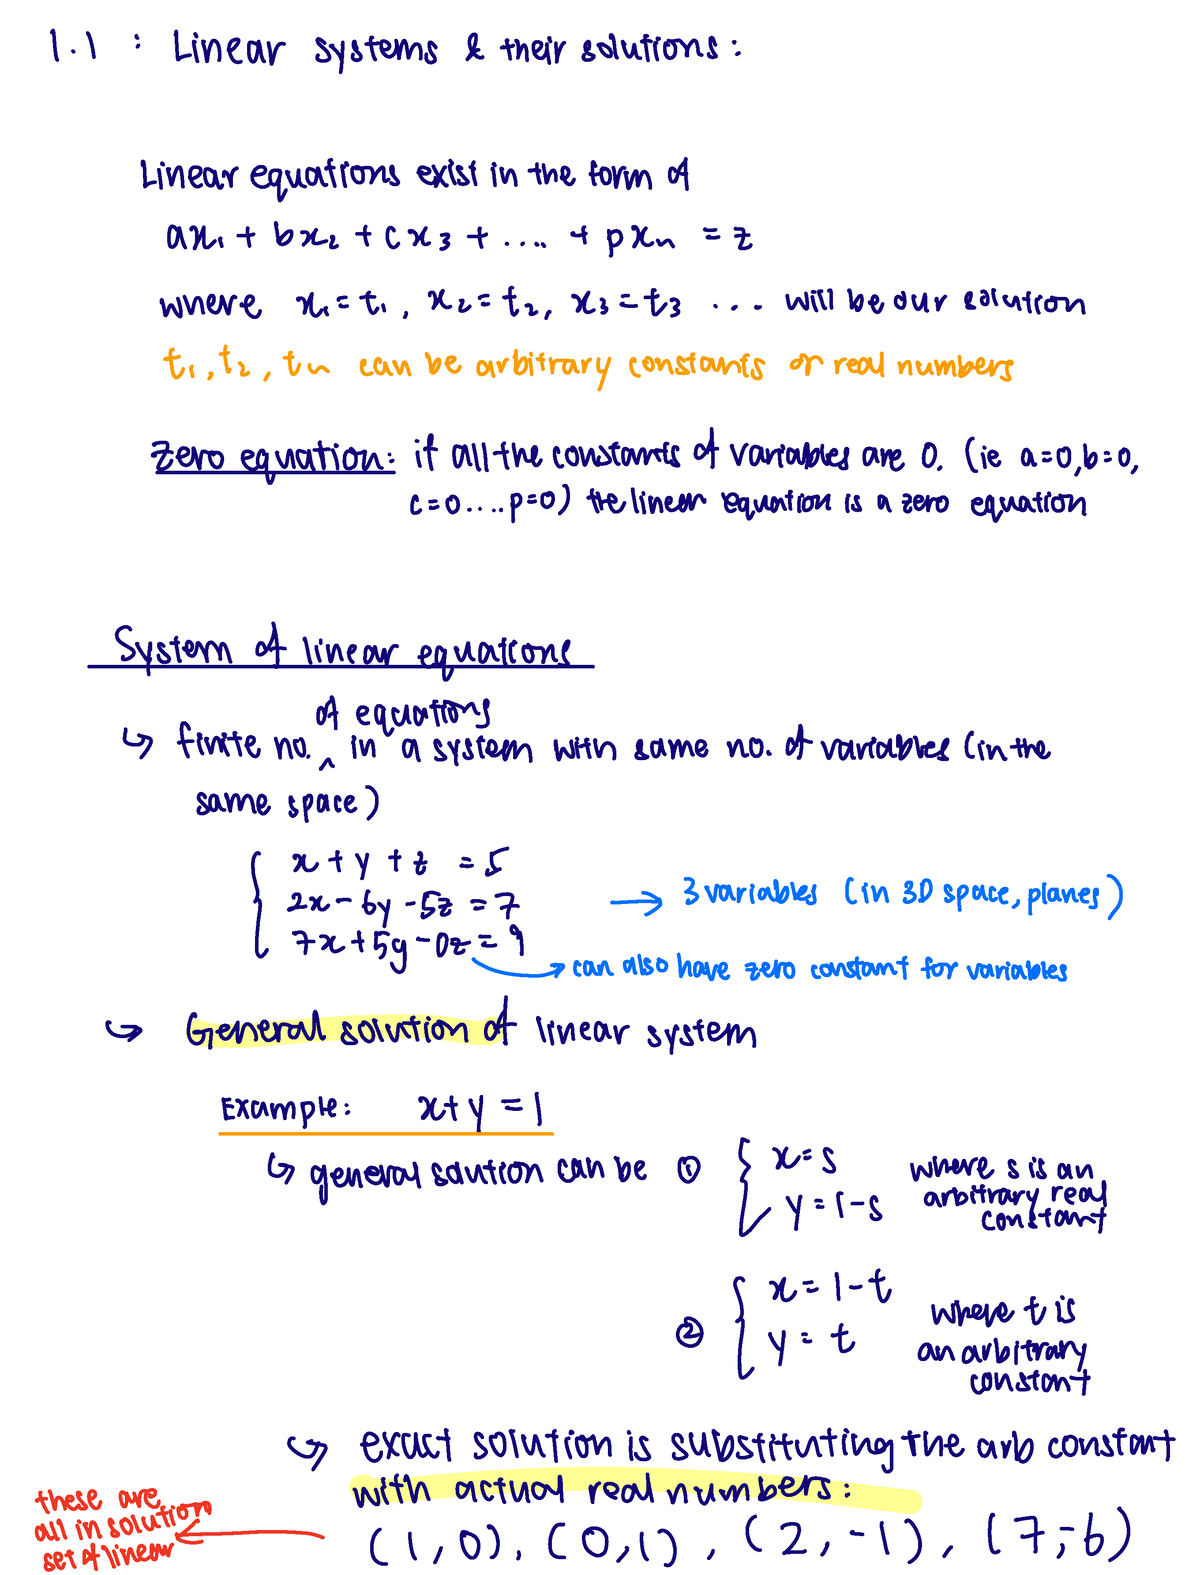 1.1 : Linear systems & their solutions :
Linear equations exist in the form of
ax₁ + bx₂ + cx₃ + .... + pxₙ = z
where x₁ = t₁ , x₂ = t₂, x₃ = t₃ ... will be our solution
t₁, t₂, tₙ can be arbitrary constants or real numbers
Zero equation: if all the constants of variables are 0. (ie a=0,b=0,
c=0....p=0) the linear equation is a zero equation
System of linear equations
of equations
↳ finite no. ^ in a system with same no. of variables (in the
same space)
x + y + z = 5
2x - 6y - 5z = 7
→ 3 variables (in 3D space, planes)
7x + 5y - 0z = 9
→ can also have zero constant for variables
↳ General solution of linear system
Example: x+y = 1
↳ general solution can be ① { x = s
y = 1-s
where s is an
arbitrary real
constant
② { x = 1-t
y = t
where t is
an arbitrary
constant
↳ exact solution is substituting the arb constant
with actual real numbers:
(1,0), (0,1), (2,-1), (7,-6)
these are
all in solution
set of linear